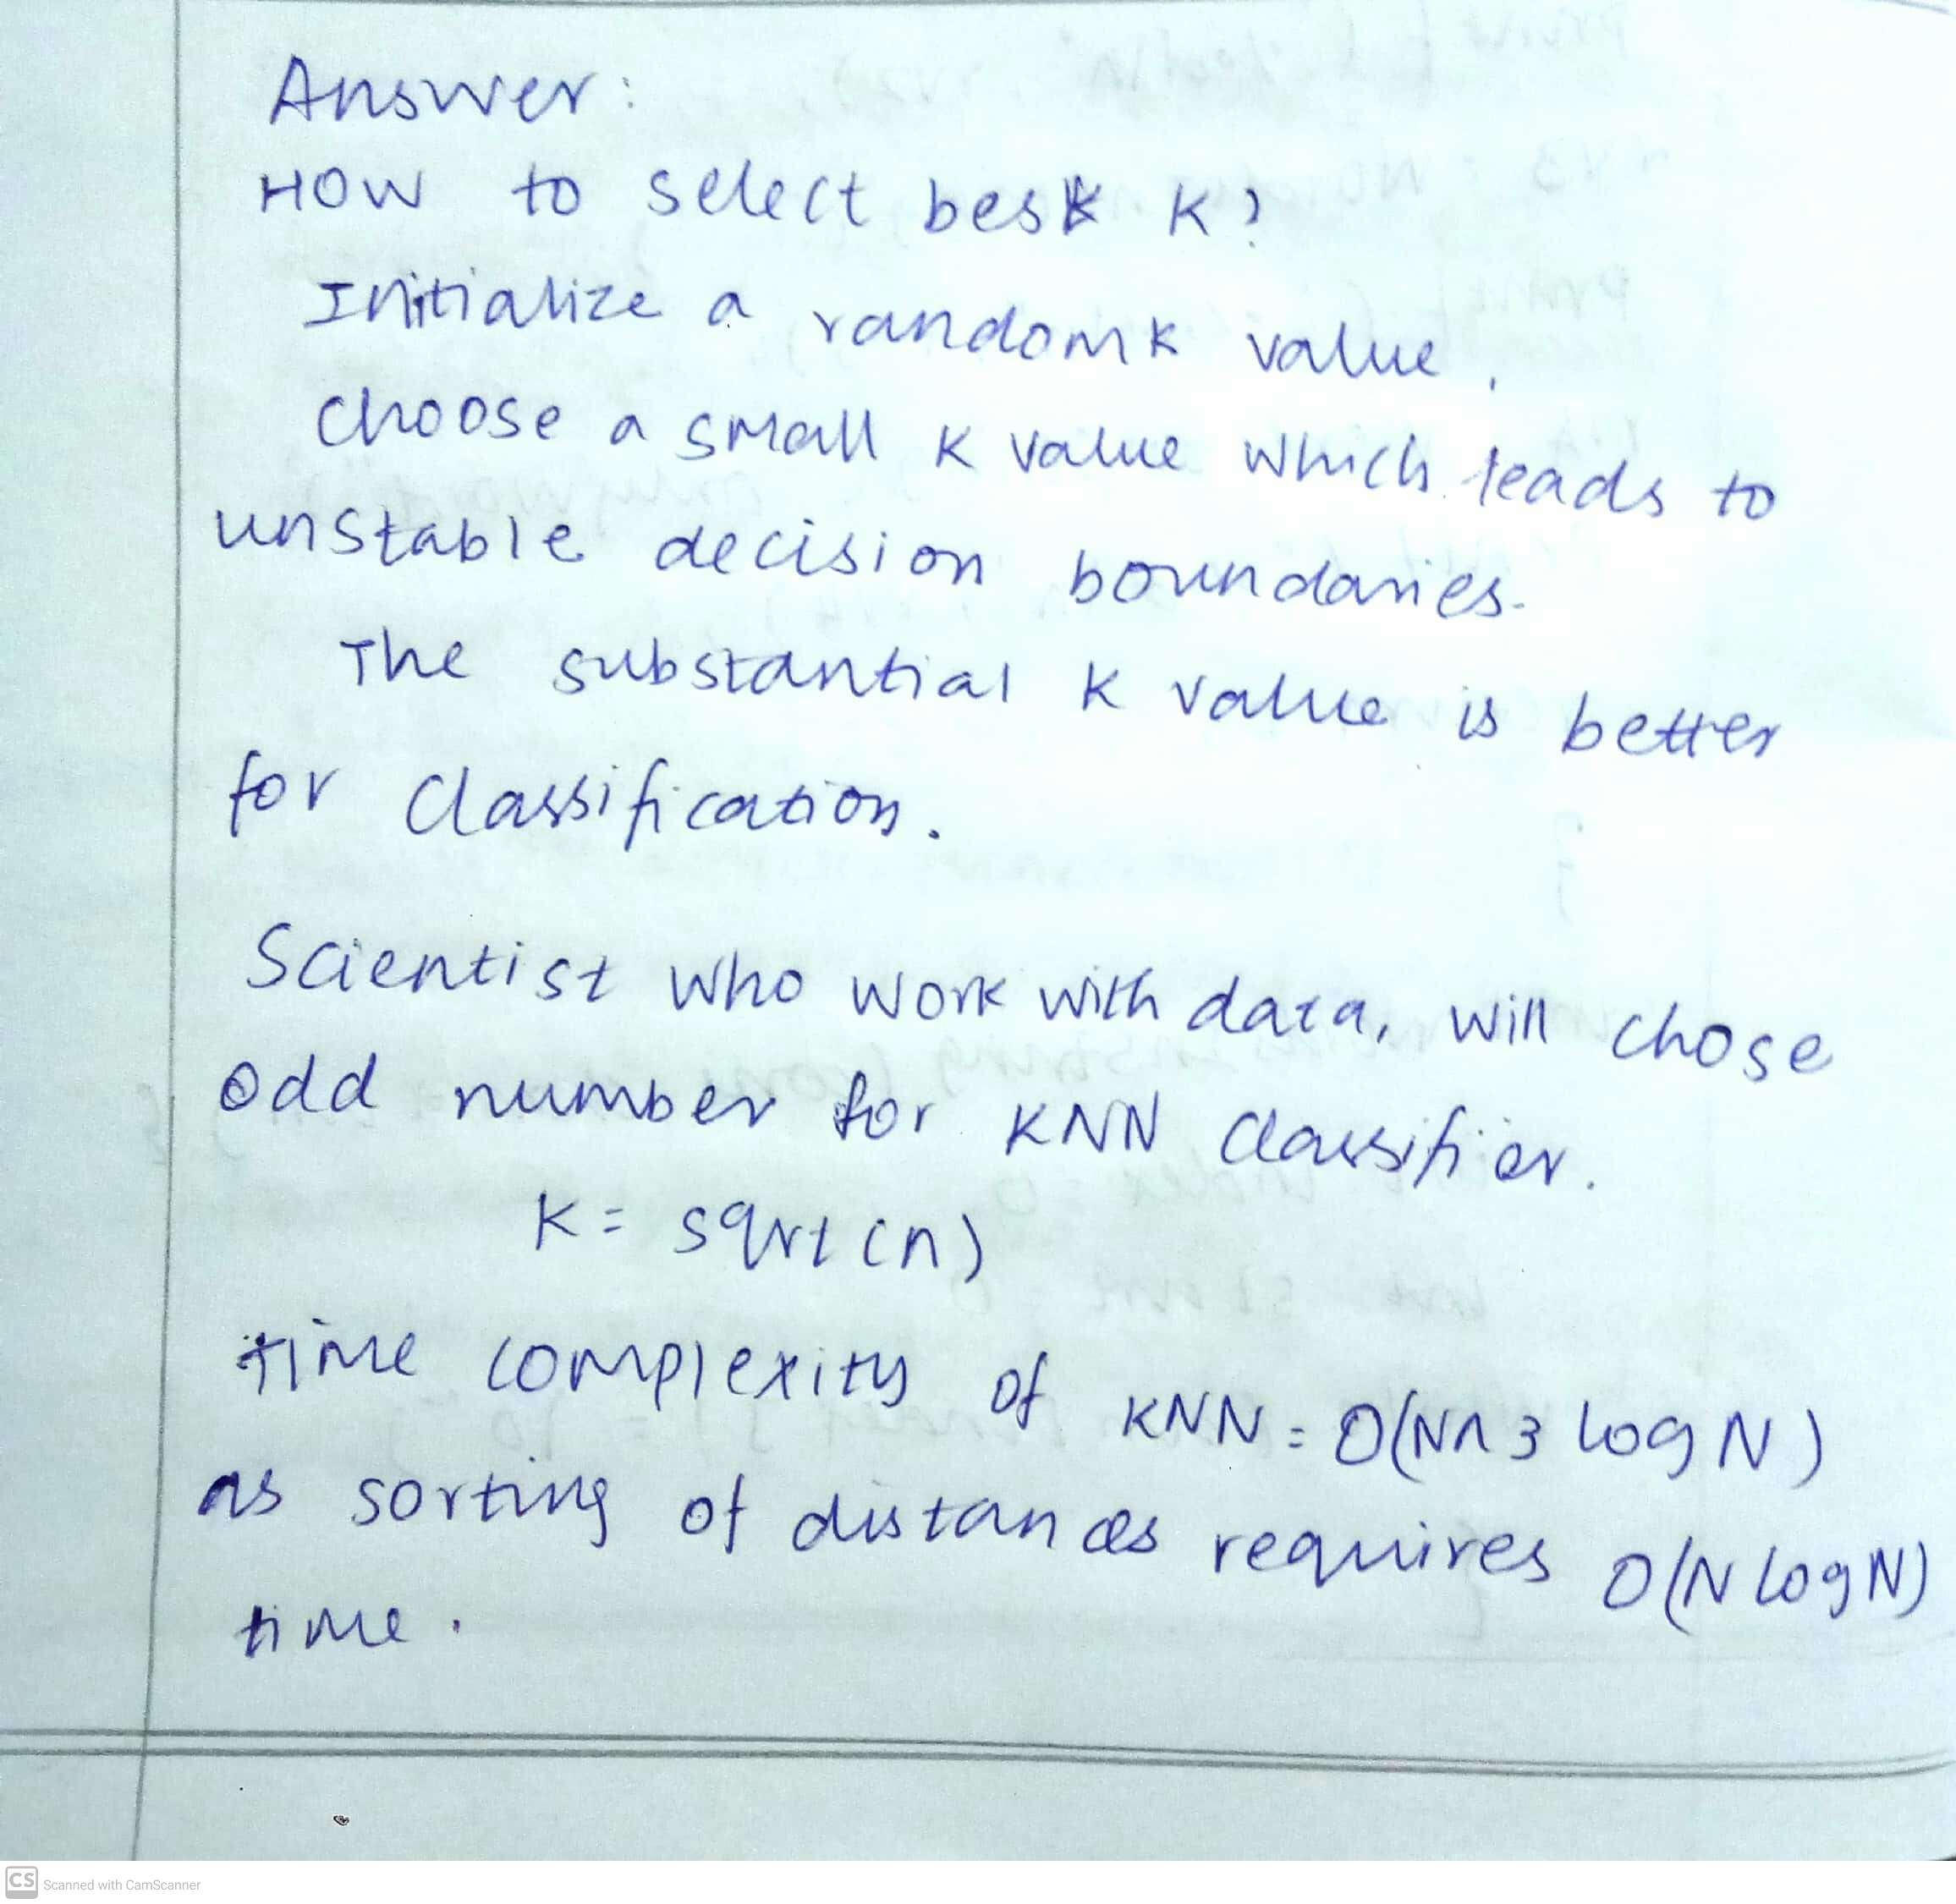 Answer:
How to select best K?
Initialize a random K value.
Choose a small K value which leads to
unstable decision boundaries.
The substantial K value is better
for classification.
Scientist who work with data, will chose
odd number for KNN classifier.
K = sqrt(n)
Time complexity of KNN = O(N^3 log N)
as sorting of distances requires O(N log N)
time.
CS Scanned with CamScanner